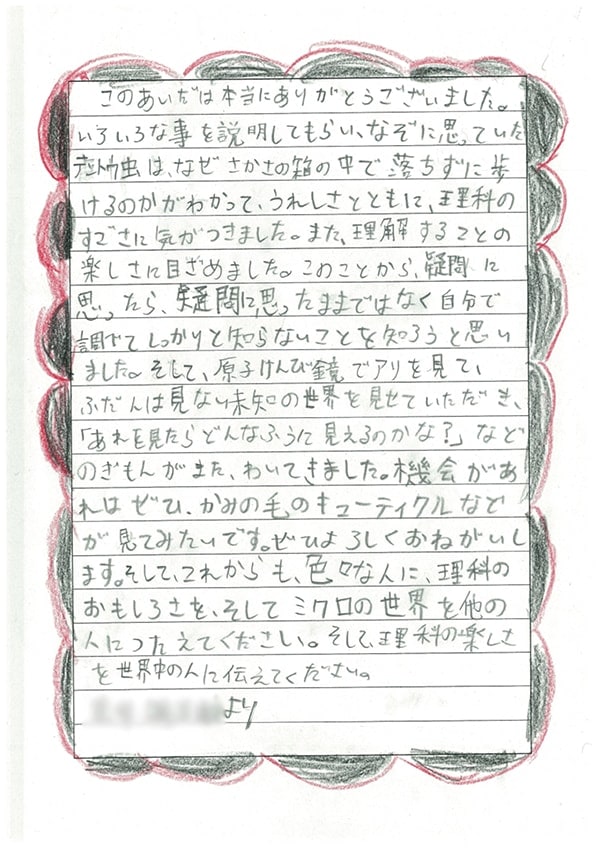 このあいだは本当にありがとうございました。
いろいろな事を説明してもらい、なぞに思っていた
テントウ虫は、なぜさかさの箱の中で落ちずに歩
けるのかがわかって、うれしさとともに、理科の
すごさに気がつきました。また、理解することの
楽しさに目ざめました。このことから、疑問に
思ったら、疑問に思ったままではなく自分で
調べてしっかりと知らないことを知ろうと思い
ました。そして、原子けんび鏡でアリを見て、
ふだんは見ない未知の世界を見せていただき、
「あれを見たらどんなふうに見えるのかな?」など
のぎもんがまた、わいてきました。機会があ
ればぜひ、かみの毛のキューティクルなど
が見てみたいです。ぜひよろしくおねがいし
ます。そして、これからも、色々な人に、理科の
おもしろさを、そしてミクロの世界を他の
人につたえてください。そして、理科の楽しさ
を世界中の人に伝えてください。
より